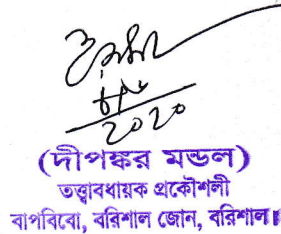 ২০২০
(দীপঙ্কর মন্ডল)
তত্ত্বাবধায়ক প্রকৌশলী
বাপবিবো, বরিশাল জোন, বরিশাল।